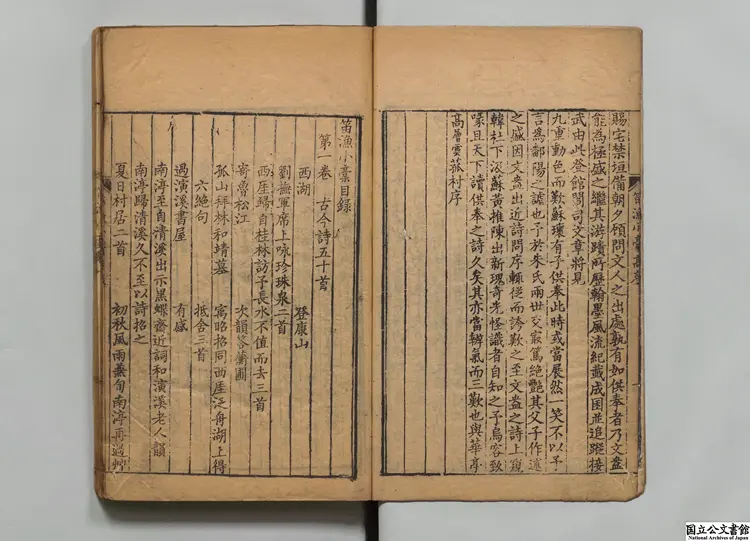 賜宅禁垣備朝夕顧問文人之出處孰有如供奉者乃文盎
能為極盛之繼其游躋所歷翰墨風流紀載成困並追蹤接
武由此登館閣司文章將見
九重動色而歎蘇瓌有子供奉此時或當展然一笑不以予
言為鄙陽之謔也予於朱氏兩世交最篤絕艷其父子作述
之盛因文盎出近詩問序輒從而誇歎之至文盎之詩上窺
韓杜下汲蘇黃推陳出新瑰奇先怪識者自知之予烏容致
喙且天下讀供奉之詩久矣其亦當辨氣而三歎也與華亭
高層雲菰村序
笛漁小稾目錄
第一卷 古今詩五十首
西湖 登康山
劉撫軍席上咏珍珠泉二首
西厓歸自桂林訪子長水不值而去三首
寄魯松江 次韻答蘭圃
孤山拜林和靖墓 寓昭招同西厓泛舟湖上得
六絕句 抵舍三首
過濱溪書屋 有感
南渟至自清溪出示黑蝶齋近詞和濱溪老人韻
南渟歸清溪久不至以詩招之
夏日村居二首 初秋風雨兼旬南渟再過艸
笛漁小稾
国立公文書館
National Archives of Japan